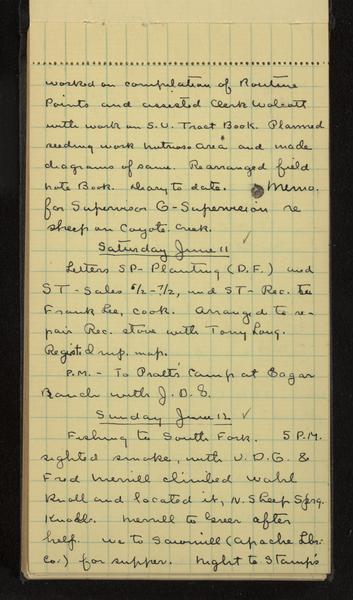 worked on compilation of Routine
Points and assisted Clerk Wolcott
with work on S.U. Tract Book. Planned
seeding work nutrioso area and made
diagrams of same. Rearranged field
note Book. Diary to date. Memo.
for Supervisor G-Supervision re
sheep on Coyote Creek.
Saturday June 11 ✓
Letters SP-Planting (D.F.) and
ST-Sales 6/2-7/2, and ST-Rec. to
Frank Lee, cook. Arranged to re-
pair Rec. stove with Tony Long.
map.
P.M. - To Pratt's Camp at Eagar
Ranch with J.D.
Sunday June 12 ✓
Fishing to South Fork. 5 P.M.
sighted smoke, with J.D. &
Fred Merrill climbed Wahl
Knoll and located it, N. Sheep Sprg.
Knoll. Merrill to Greer after
help. We to Sawmill (Apache Lbr.
Co.) for supper. Night to Stamp's